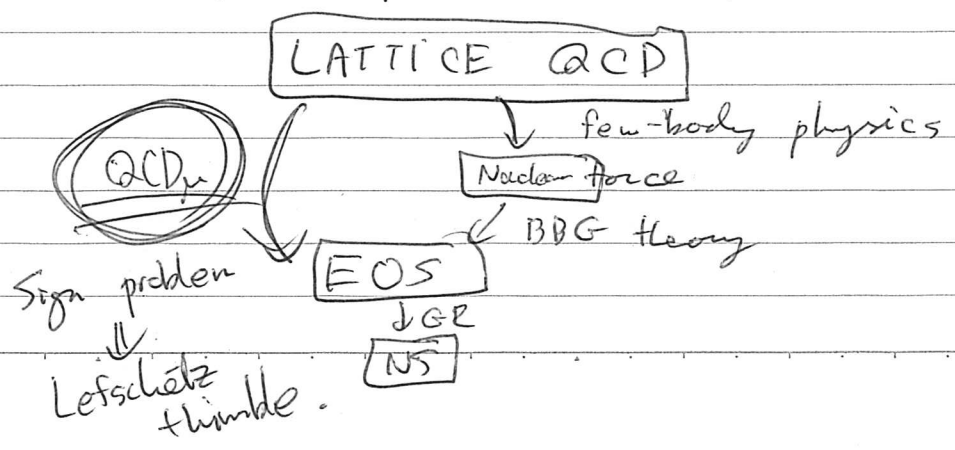 LATTICE QCD
few-body physics
QCDμ
Nuclear force
BBG theory
EOS
Sign problem
GR
NS
Lefschetz
thimble.